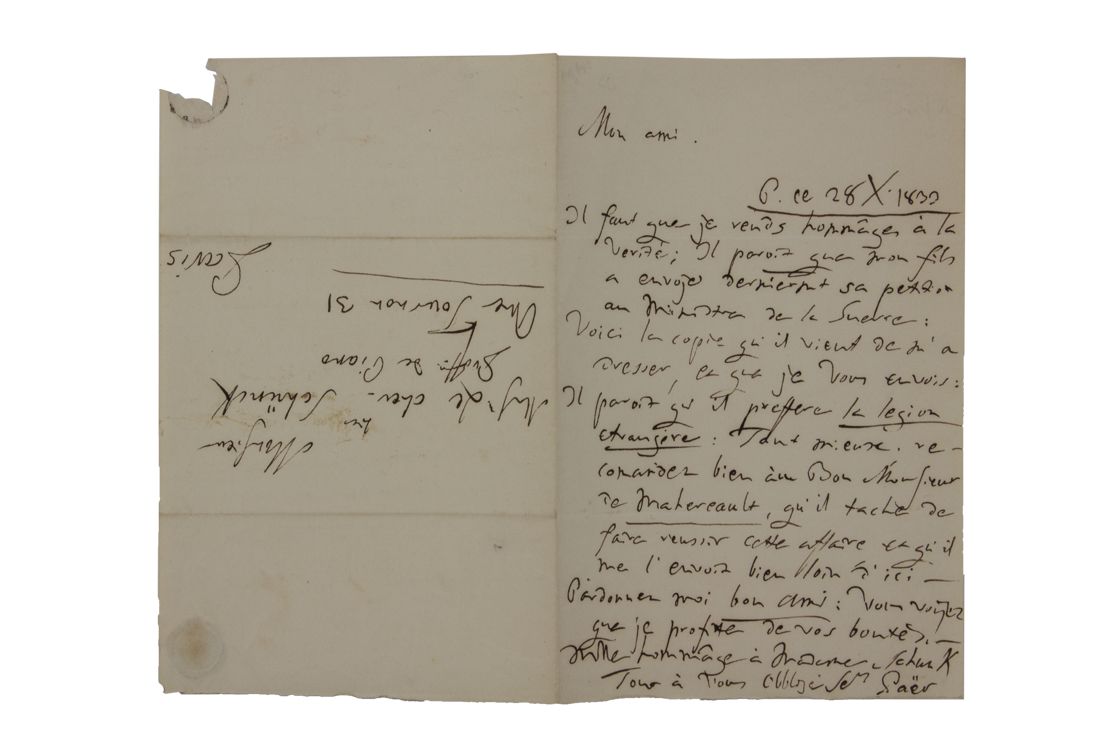 Mon ami.
P. ce 28 X. 1833
Il faut que je rends hommâges à la
verité; Il paroit que mon fils
a envoyé derniermt sa petition
au Ministre de la Guerre:
Voici la copie qu'il vient de m'a
dresser, et que je vous envois:
Il paroit qu'il preffere la legion
etrangère: Tant mieux. re-
comander bien àu Bon Monsieur
de Mahereault, qu'il tache de
faire reussir cette affaire et qu'il
me l'envoit bien loin d'ici —
Pardonner moi bon Ami: Vous voiyez
que je profite de vos boutés. —
Mille hommâge à Madame Schunk
Tout à Vous Obbligé Sermr Paër
Monsieur
de cher. Schünck
Proffr. de Piano
Rue Tournon 31
Paris